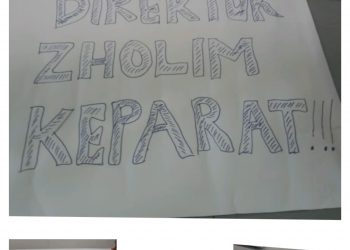 DIREKTUR
ZHOLIM
KEPARAT!!!